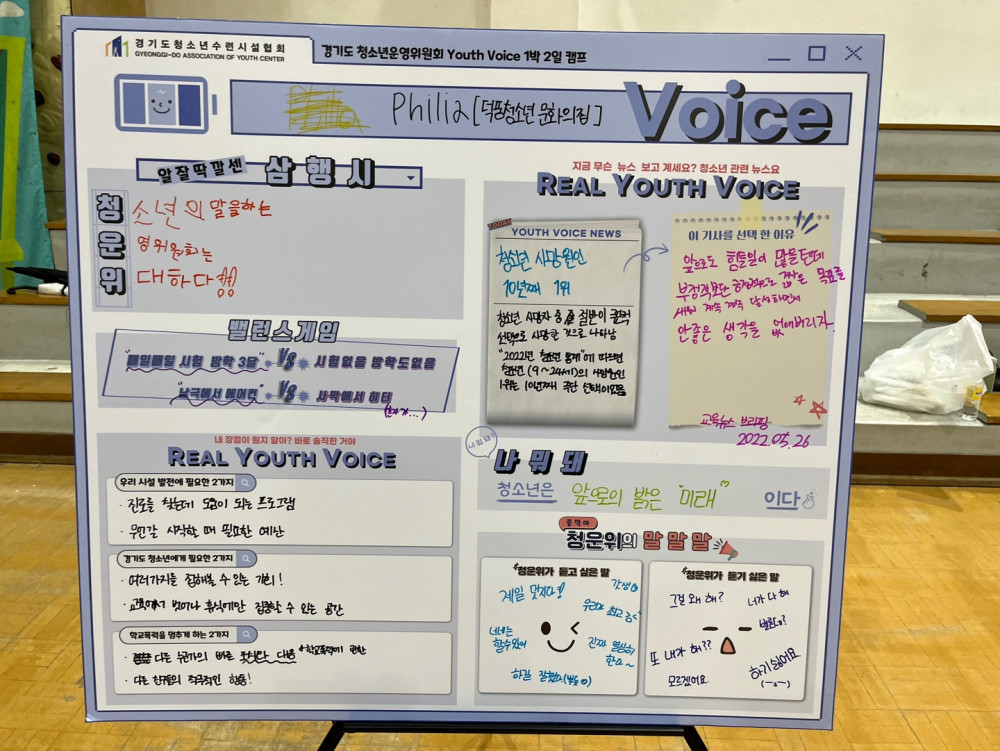 경기도청소년수련시설협회
GYEONGGI-DO ASSOCIATION OF YOUTH CENTER
경기도 청소년운영위원회 Youth Voice 1박 2일 캠프
Philia [덕풍청소년 문화의집]
Voice
알잘딱깔센 삼행시
청소년의 말을하는
운영위원회는
위대하다!!
밸런스게임
"매일매일 시험 방학 3달" VS 시험없음 방학도없음
"남극에서 에어컨" VS 사막에서 히터
내 장점이 뭔지 알아? 바로 솔직한 거야
REAL YOUTH VOICE
우리 시설 발전에 필요한 2가지
· 진로를 찾는데 도움이 되는 프로그램
· 무언갈 시작할 때 필요한 예산
경기도 청소년에게 필요한 2가지
· 여러가지를 접해볼 수 있는 기회!
· 교육에서 벗어나 휴식에만 집중할 수 있는 공간
학교폭력을 멈추게 하는 2가지
· 다른 누군가의 빠른
· 다른 친구들의 적극적인 행동!
지금 무슨 뉴스 보고 계세요? 청소년 관련 뉴스요
REAL YOUTH VOICE
TODAY
YOUTH VOICE NEWS
청소년 사망원인
10년째 1위
청소년 사망자 중 절반이 극적
선택으로 사망한 것으로 나타남
"2022년 청소년 통계"에 따르면
청소년(9~24세)의 사망원인
1위는 10년째 극단 선택이었음
이 기사를 선택 한 이유
앞으로도 힘들일이 많을텐데
부정적보단 긍정적으로 작은 목표를
세워 계속 계속 달성하면서
안좋은 생각을 없애버리자
교육뉴스 브리핑
2022.05.26
나 뭐 돼?
나 뭐 돼
청소년은 앞으로의 밝은 "미래" 이다
중꺽마
청운위의 말 말 말
청운위가 듣고 싶은 말
제일 멋지다!
갓생
우리가 최고
너네는
할수있어
진짜 열심히
한다~
하길 잘했어
청운위가 듣기 싫은 말
그걸 왜 해?
너가 다 해
또 내가 해??
모르겠어요
하기 싫어요